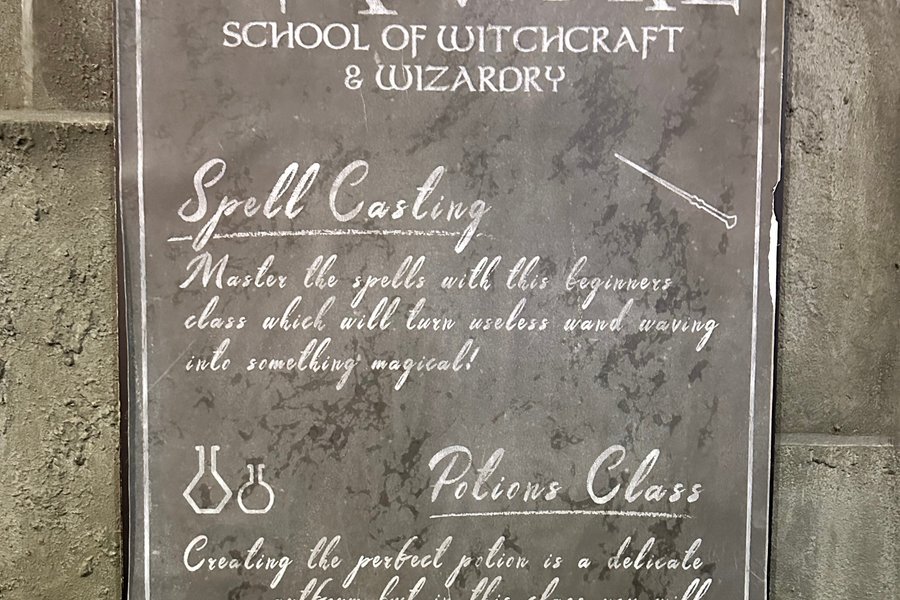 SCHOOL OF WITCHCRAFT
& WIZARDRY
Spell Casting
Master the spells with this beginners
class which will turn useless wand waving
into something magical!
Potions Class
Creating the perfect potion is a delicate
but in this class you will